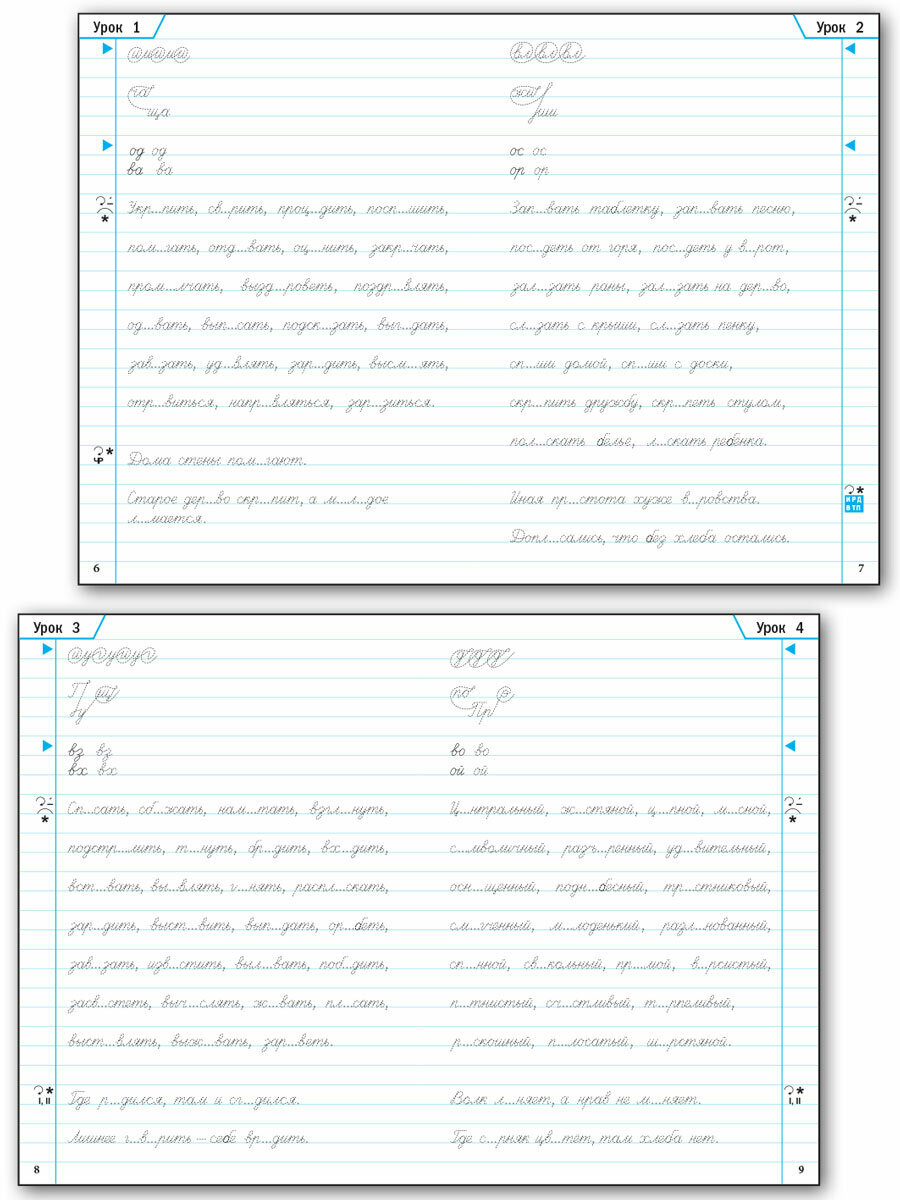 Урок 1
ча
ща
од од
ва ва
Укр...пить, св...рить, проц...дить, посп...шить,
пом...гать, отд...вать, оц...нить, закр...чать,
пром...лчать, вызд...роветь, поздр...влять,
од...вать, вып...сать, подск...зать, выг...дать,
зав...зать, уд...влять, зар...дить, высм...ять,
отр...виться, напр...вляться, зар...зиться.
Дома стены пом...гают.
Старое дер...во скр...пит, а м...л...дое
л...мается.
6
Урок 2
вл вл вл
жи
ши
ос ос
ор ор
Зап...вать таблетку, зап...вать песню,
пос...деть от горя, пос...деть у в...рот,
зал...зать раны, зал...зать на дер...во,
сл...зать с крыши, сл...зать пенку,
сп...ши домой, сп...ши с доски,
скр...пить дружбу, скр...петь стулом,
пол...скать белье, л...скать ребенка.
Иная пр...стота хуже в...ровства.
Допл...сались, что без хлеба остались.
ИРД
ВТП
7
Урок 3
П щ
у
вз вз
вх вх
Сп...сать, сб...жать, нам...тать, взгл...нуть,
подстр...лить, т...нуть, бр...дить, вх...дить,
вст...вать, вы...влять, г...нять, распл...скать,
зар...дить, выст...вить, вып...дать, ор...беть,
зав...зать, изв...стить, выл...вать, поб...дить,
засв...стеть, выч...слять, ж...вать, пл...сать,
выст...влять, выж...вать, зар...веть.
I, II
Где р...дился, там и сг...дился.
Лишнее г...в...рить — себе вр...дить.
8
Урок 4
по з
Пр
во во
ой ой
Ц...нтральный, ж...стяной, ц...пной, м...сной,
с...мволичный, разъ...ренный, уд...вительный,
осн...щенный, подн...бесный, тр...стниковый,
см...гченный, м...лоденький, разл...нованный,
сп...нной, св...кольный, пр...мой, в...рсистый,
п...тнистый, сч...стливый, т...рпеливый,
р...скошный, п...лосатый, ш...рстяной.
I, II
Волк л...няет, а нрав не м...няет.
Где с...рняк цв...тет, там хлеба нет.
9